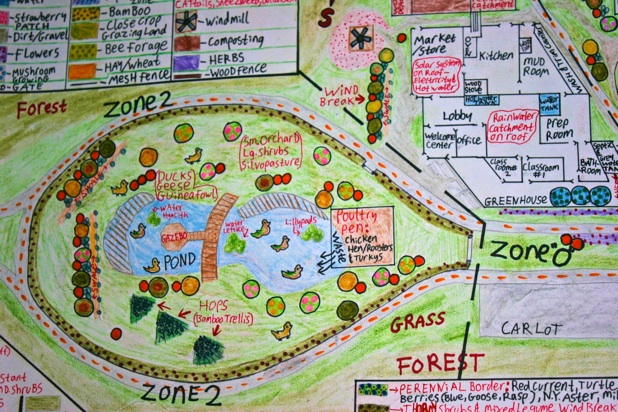 Strawberry
PATCH
Dirt/Gravel
Flowers
Mushroom
Growing
D-GATE
BamBoo
Close Crop
Grazing Land
Bee Forage
HAY/wheat
MESH fence
Windmill
Composting
HERBS
WOODFENCE
CATCHMENT
S
Forest
ZONE 2
WIND
Break
Market
/store
Kitchen
MUD
ROOM
Solar system
on Roof-
Electricity &
Hot water
WOOD
STOVE
WATER
TANK
Lobby
Rainwater
Catchment
on roof
Prep
Room
Welcome
Center
office
Class
rooms
2
Classroom
#1
BATH
ROOM
GREENHOUSE
Sm. Orchard
Lg. shrubs
Silvopasture
DUCKS
Geese
Guineafowl
Water
Hyacith
GAZEBO
water
Lettuce
Lillypads
POND
Poultry
Pen:
chicken
Hen/Roosters
& Turkys
ZONE 0
HOPS
(Bamboo Trellis)
GRASS
CARLOT
FOREST
ZONE 2
PERENNIAL Border: Red currant, Turtle
Berries (Blue, Goose, Rasp), N.Y. Aster, mil
Shrubs & Mixed Legume Wind Break